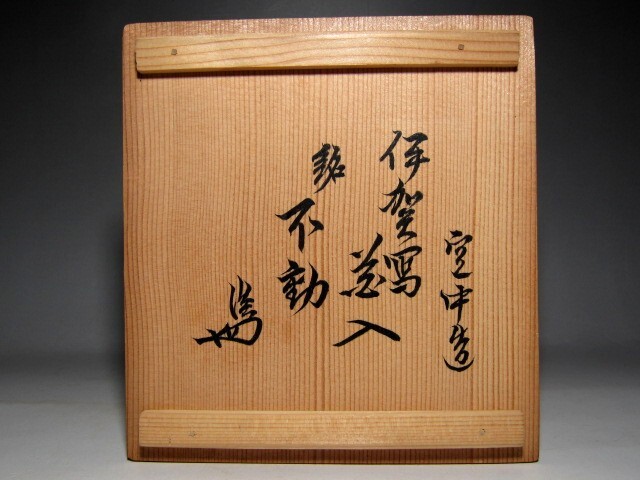 空中造
伊賀写
花入
銘
不動